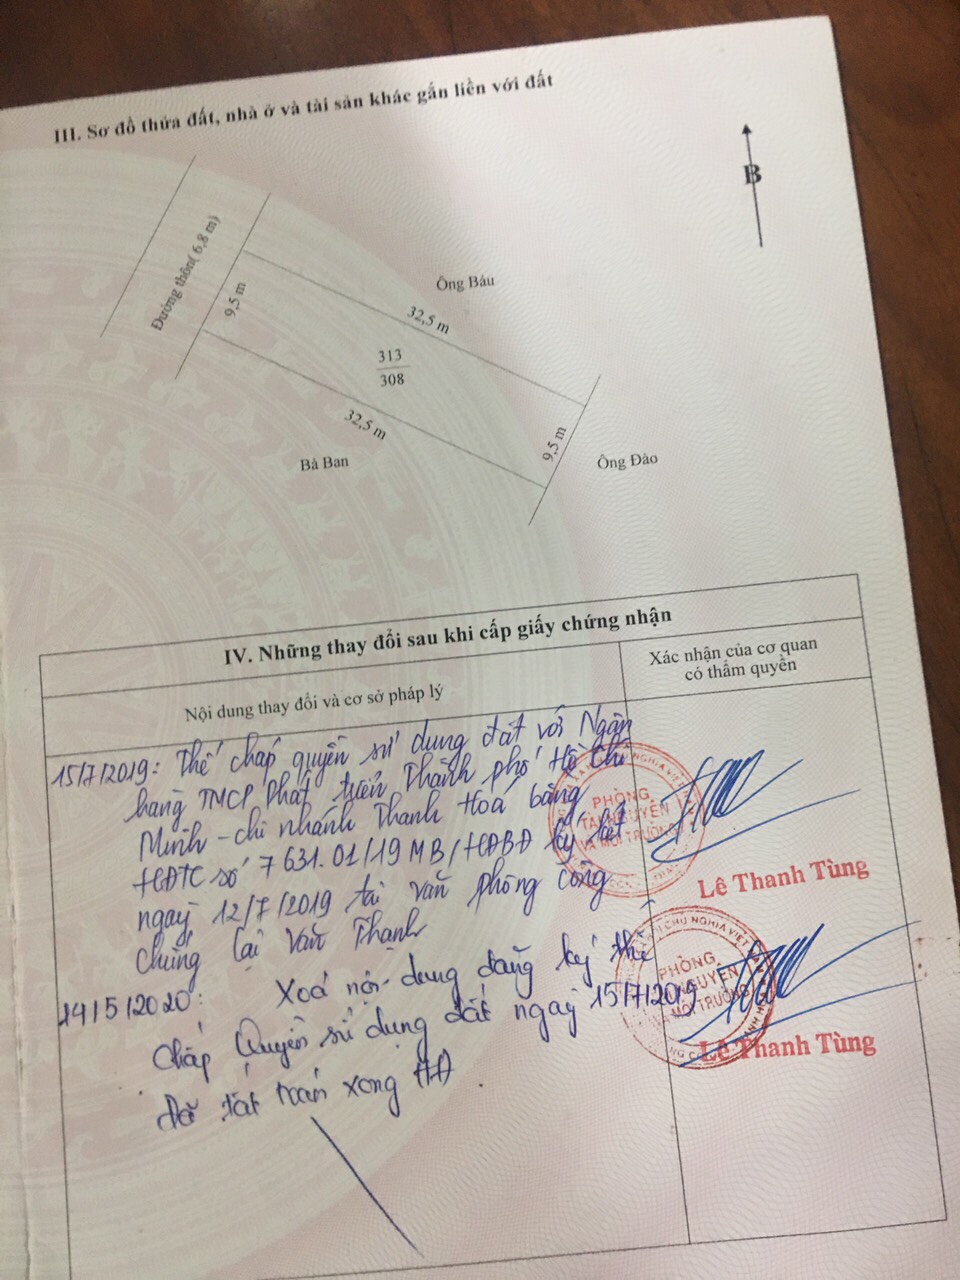 III. Sơ đồ thửa đất, nhà ở và tài sản khác gắn liền với đất
B
Đường thôn( 6,8 m)
9,5 m
Ông Báu
32,5 m
313
308
32,5 m
9,5 m
Bà Ban
Ông Đào
IV. Những thay đổi sau khi cấp giấy chứng nhận
Nội dung thay đổi và cơ sở pháp lý
Xác nhận của cơ quan
có thẩm quyền
15/7/2019: Thế chấp quyền sử dụng đất với Ngân
hàng TMCP Phát triển Thành phố Hồ Chí
Minh - chi nhánh Thanh Hoá bằng
HĐTC số 7631.01/19MB/HĐBĐ ký kết
ngày 12/7/2019 tại văn phòng công
chứng Lại Văn Thạnh
PHÒNG
TÀI NGUYÊN
VÀ MÔI TRƯỜNG
Lê Thanh Tùng
14/5/2020: Xoá nội dung đăng ký thế
chấp Quyền sử dụng đất ngày 15/7/2019
Đã tất toán xong HĐ
PHÒNG
TÀI NGUYÊN
VÀ MÔI TRƯỜNG
Lê Thanh Tùng